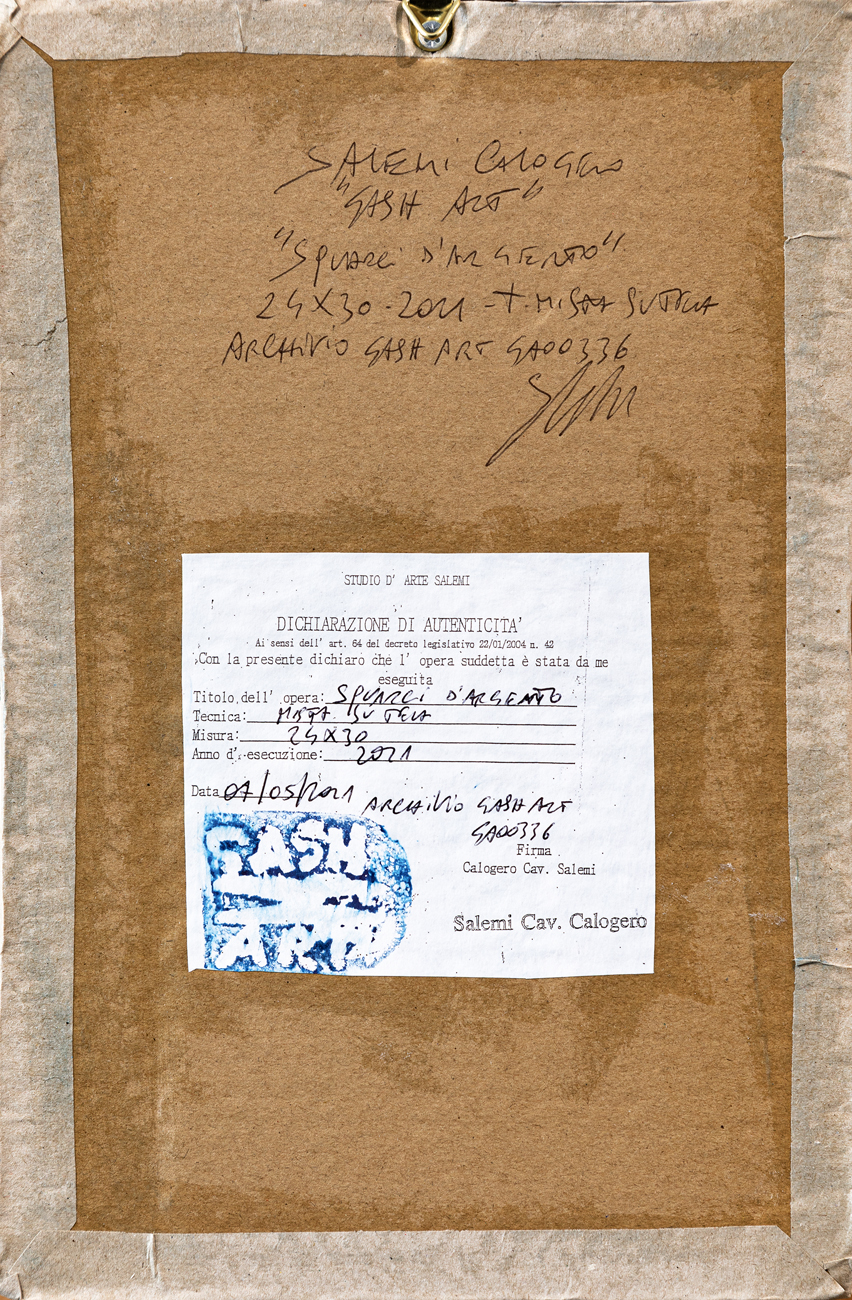 SALEMI CALOGERO
"GASH ART"
"SQUARCI D'ARGENTO"
24X30-2021-T. MISTA SU TELA
ARCHIVIO GASH ART GA00336
STUDIO D' ARTE SALEMI
DICHIARAZIONE DI AUTENTICITA'
Ai sensi dell' art. 64 del decreto legislativo 22/01/2004 n. 42
Con la presente dichiaro che l' opera suddetta è stata da me
eseguita
Titolo dell' opera: SQUARCI D'ARGENTO
Tecnica: MISTA SU TELA
Misura: 24X30
Anno d' esecuzione: 2021
Data 07/05/2021 ARCHIVIO GASH ART
GA00336
Firma
Calogero Cav. Salemi
Salemi Cav. Calogero
GASH
ART